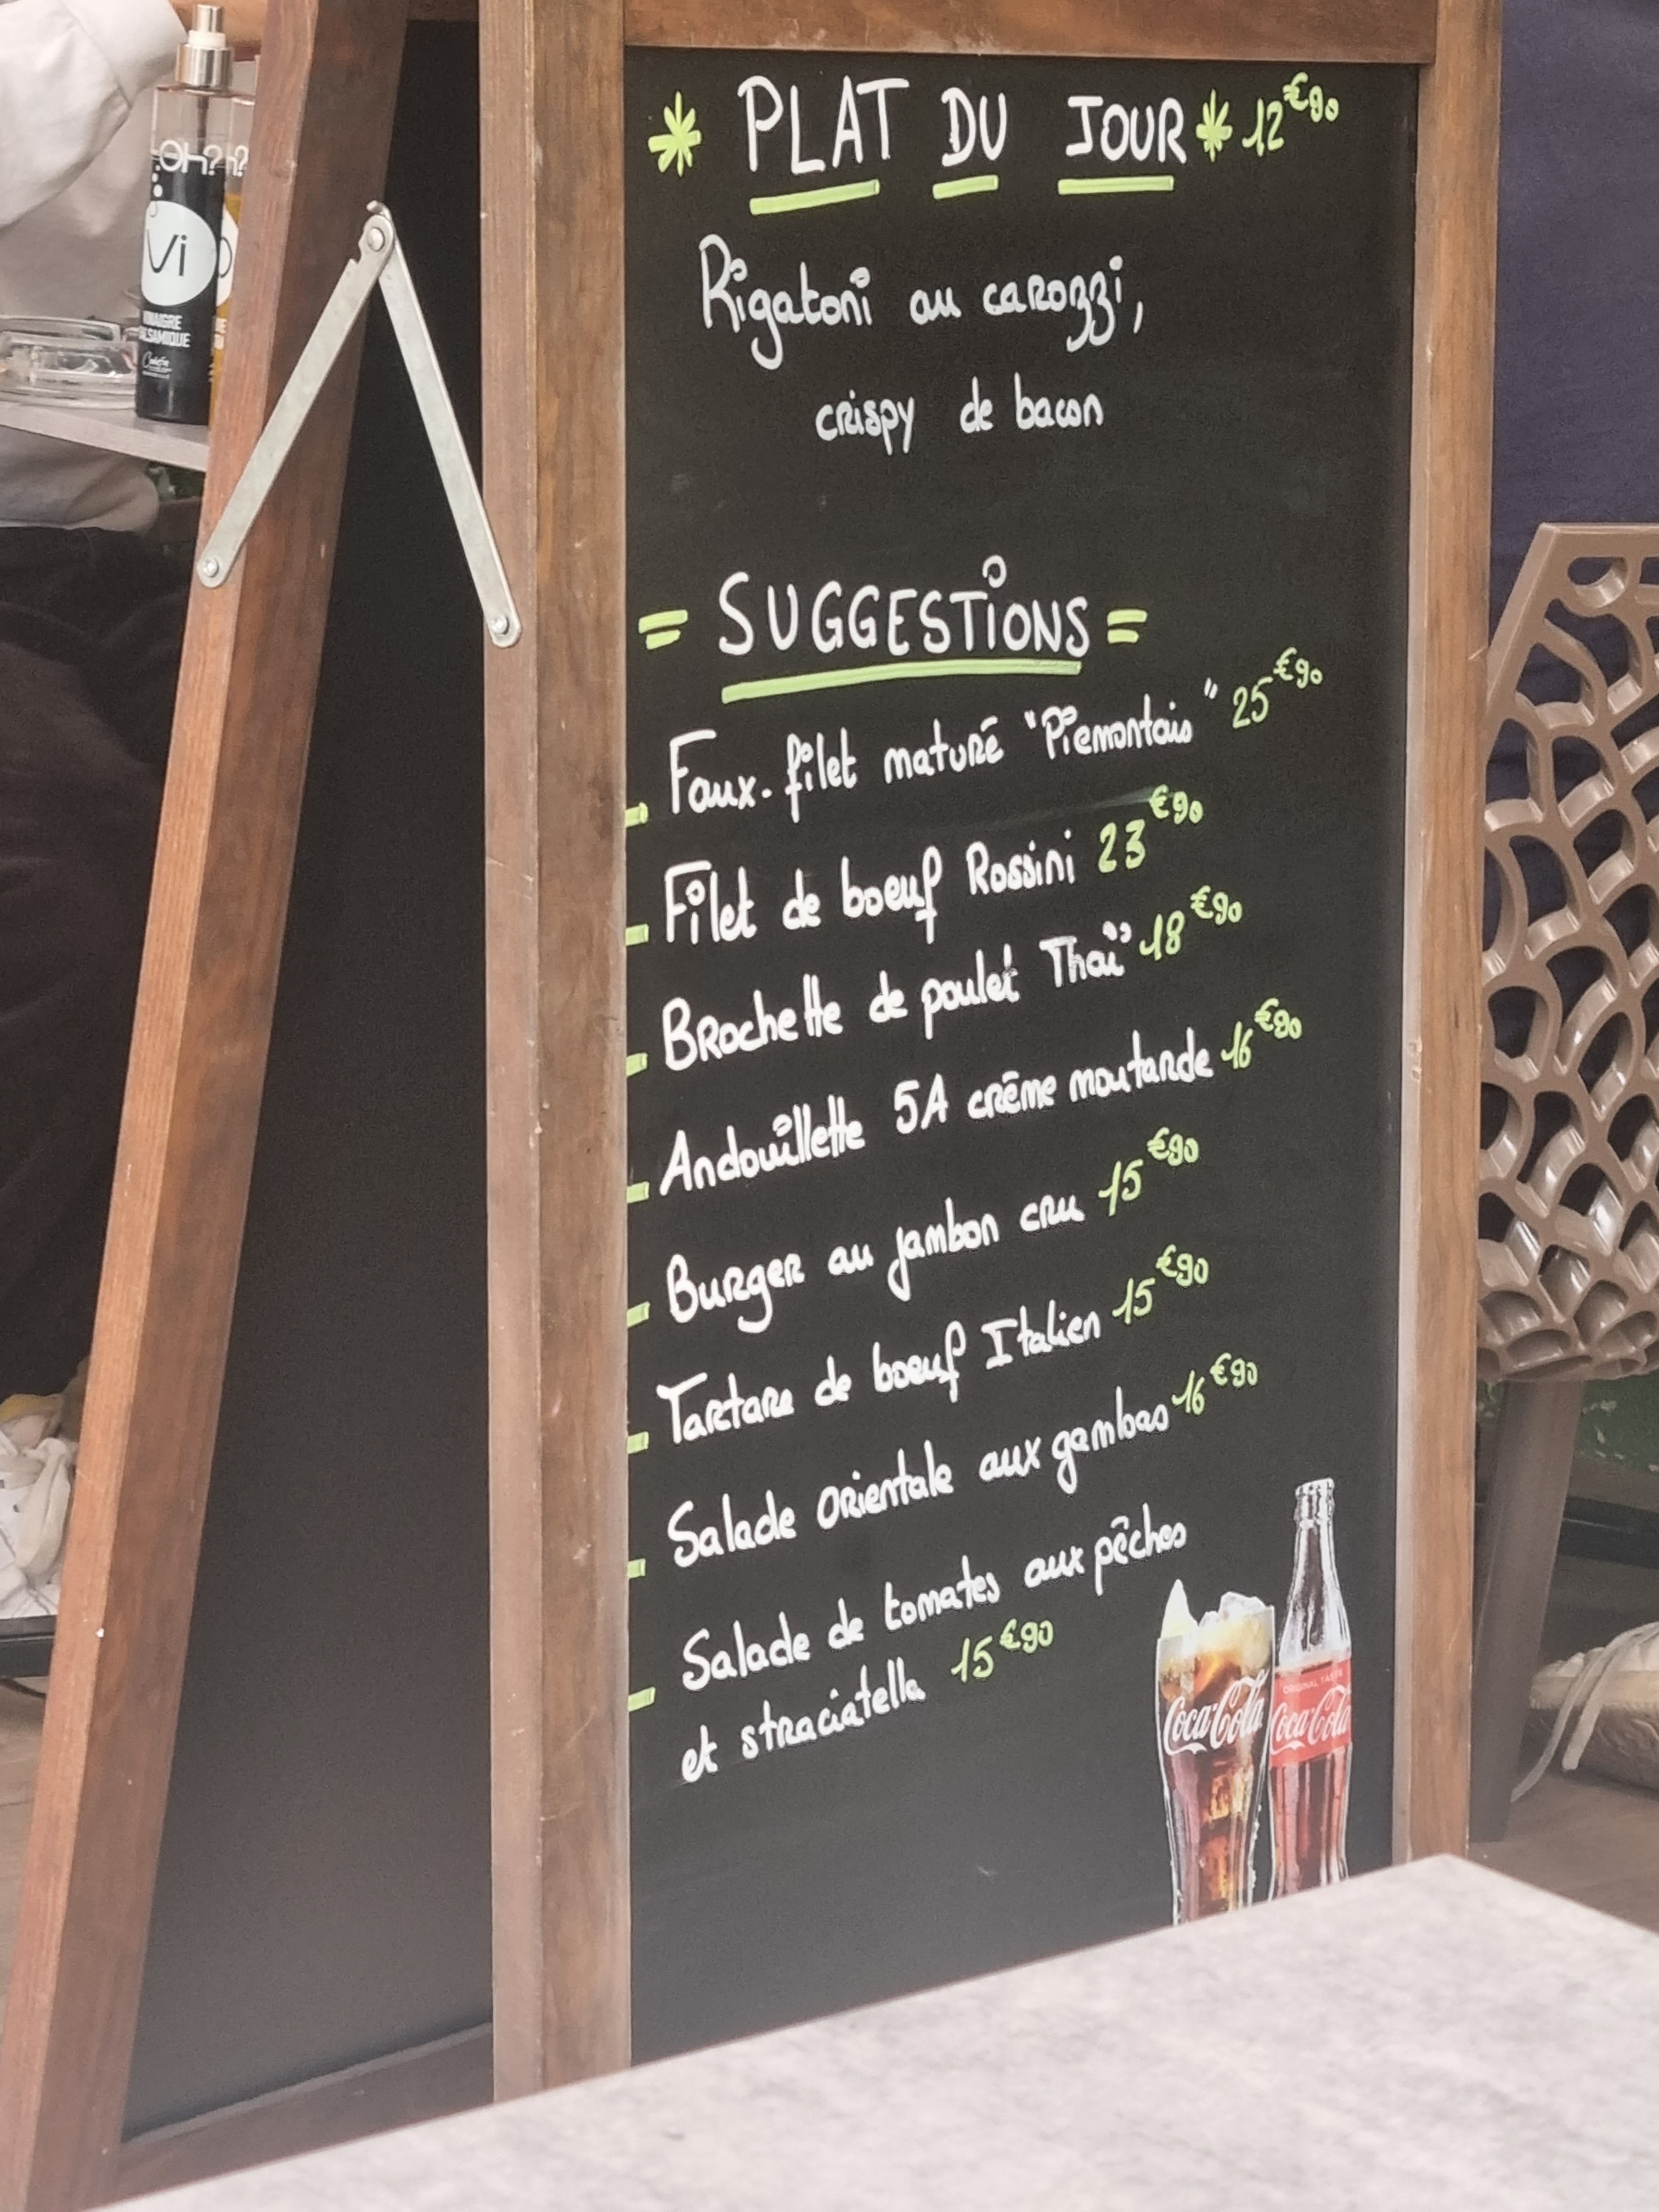 OH?
Vi
VINAIGRE
BALSAMIQUE
* PLAT DU JOUR * 12€90
Rigatoni au carozzi,
crispy de bacon
= SUGGESTIONS =
- Faux-filet maturé "Piemontais" 25€90
- Filet de boeuf Rossini 23€90
- Brochette de poulet Thaï 18€90
- Andouillette 5A crème moutarde 16€90
- Burger au jambon cru 15€90
- Tartare de boeuf Italien 15€90
- Salade orientale aux gambas 16€90
- Salade de tomates aux pêches
et straciatella 15€90
Coca-Cola
ORIGINAL TASTE
Coca-Cola